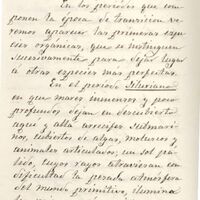 En los periodos que com-
ponen la época de transicion ve-
remos aparecer las primeras espe-
cies organicas, que se estinguen
sucesivamente para dejar lugar
á otras especies mas perfectas.
En el periodo Siluriano
en que mares inmensos y poco
profundos dejan en descubierto
aqui y allá arrecifes submari-
nos, cubiertos de algas, moluscos y
animales articulados; un sol pá-
lido, cuyos rayos atraviesan con
dificultad la pesada atmósfera
del mundo primitivo, ilumina